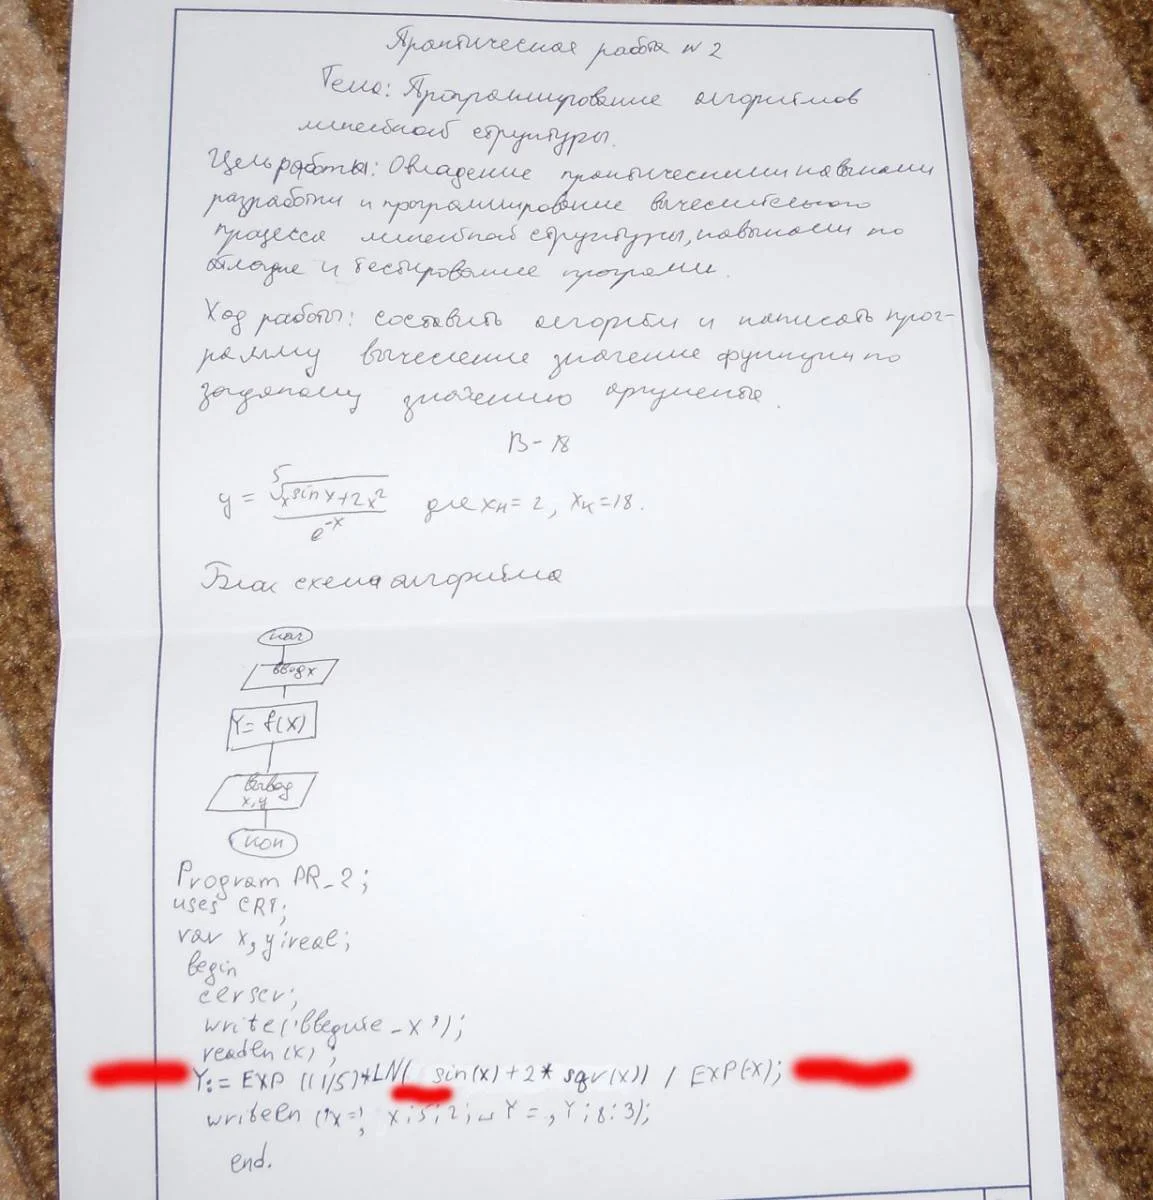 Практическая работа № 2
Тема: Программирование алгоритмов
линейной структуры.
Цель работы: Овладение практическими навыками
разработки и программирование вычеслительного
процесса линейной структуры, навыками по
отладке и тестирование программ.
Ход работы: составить алгоритм и написать прог-
рамму вычесление значение функции по
заданному значению аргумента.
В-18
y = 5√x sin x + 2x² / e^-x для xн = 2, xк = 18.
Блок схема алгоритма
нач
ввод x
Y= f(x)
вывод
x,y
кон
Program PR_2;
uses CRT;
var x, y:real;
begin
clrscr;
write('введите_x');
readln(x);
Y:= EXP ((1/5)*LN( sin(x)+2* sqr(x)) / EXP(-x);
writeln ('x=', x:5:2,␣Y=, Y:8:3);
end.